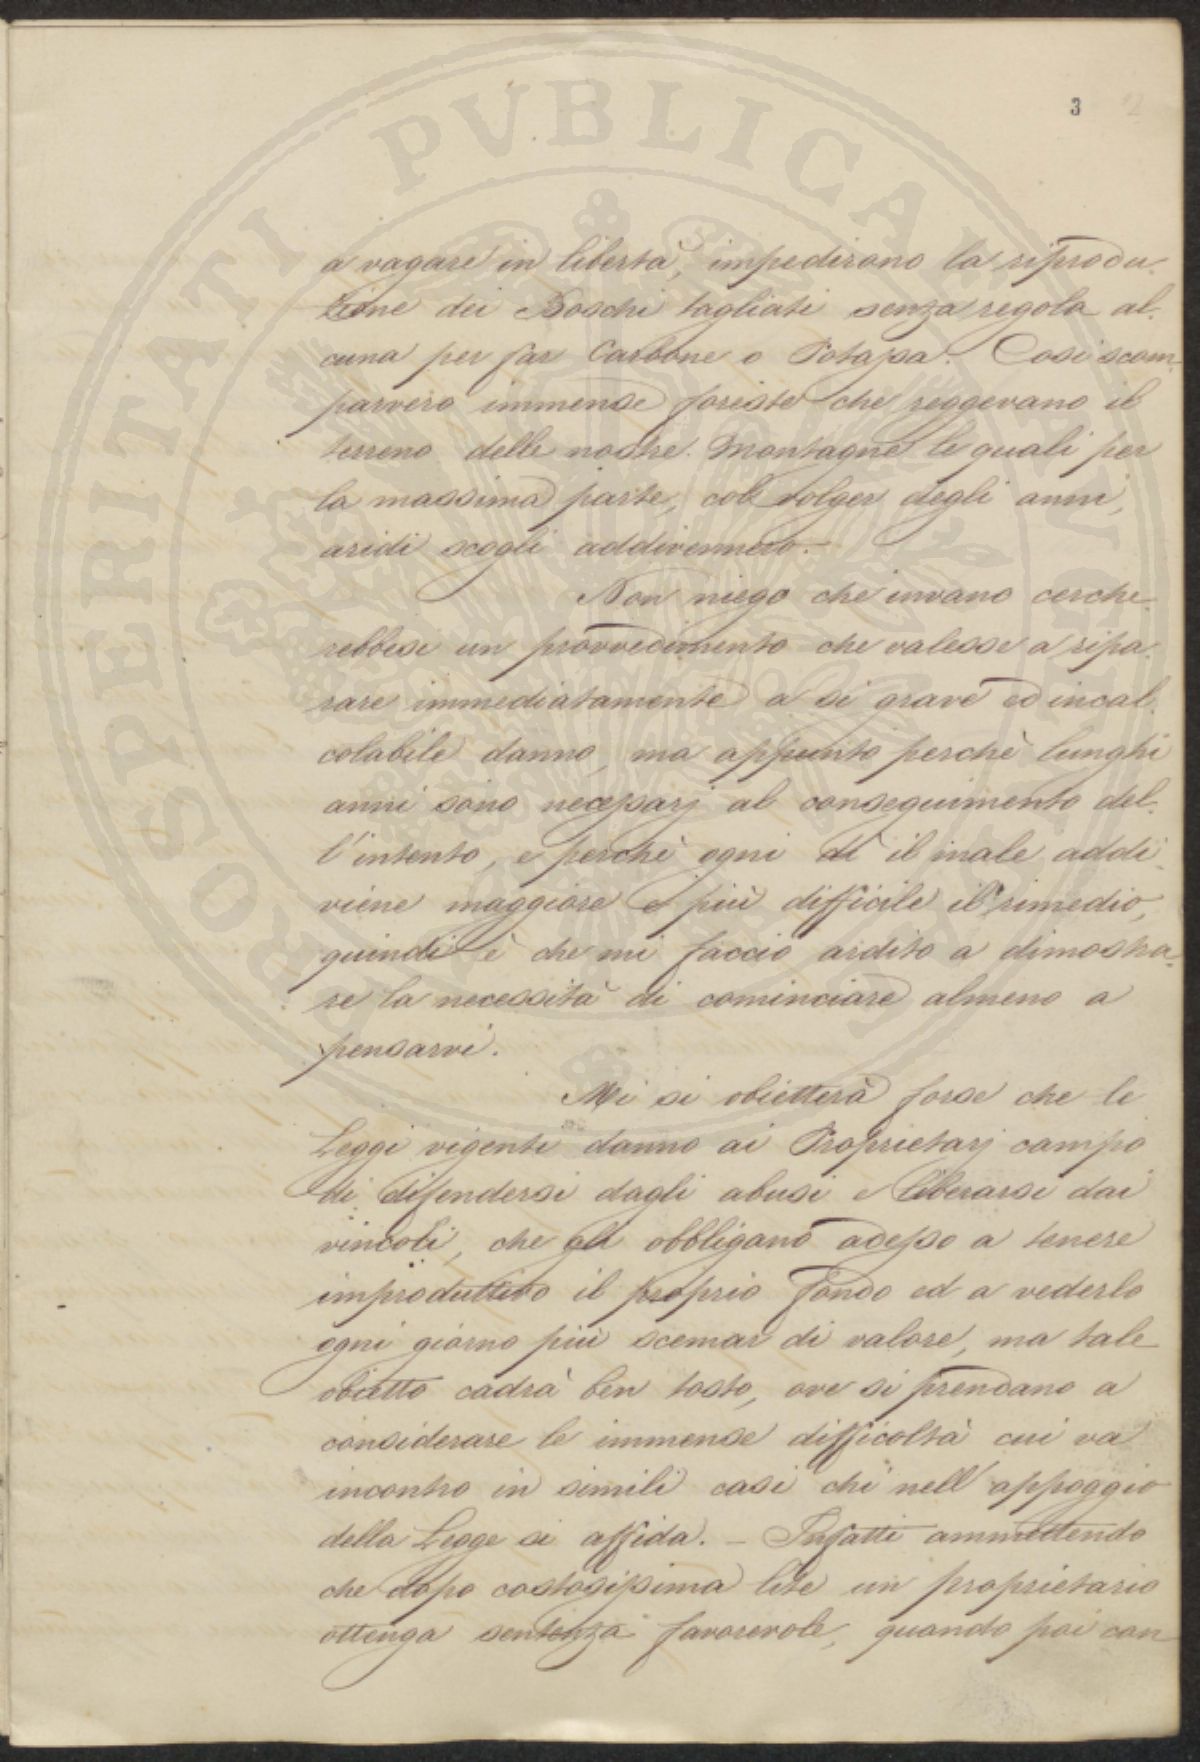 3
PROSPERITATI PVBLICAE AVGENDAE
a vagare in libertà, impedirono la riprodu-
zione dei Boschi tagliati senza regola al-
cuna per far Carbone o Potassa. Così scom-
parvero immense foreste che reggevano il
terreno delle nostre Montagne le quali per
la massima parte, col volger degli anni,
aridi scogli addivennero.—
Non niego che invano cerche-
rebbesi un provvedimento che valesse a ripa-
rare immediatamente a sì grave ed incal-
colabile danno, ma appunto perchè lunghi
anni sono necessarj al conseguimento del-
l'intento, e perchè ogni dì il male addi-
viene maggiore e più difficile il rimedio,
quindi è che mi faccio ardito a dimostra-
re la necessità di cominciare almeno a
pensarvi.
Mi si obietterà forse che le
Leggi vigenti danno ai Proprietarj campo
di difendersi dagli abusi e liberarsi dai
vincoli, che gli obbligano adesso a tenere
improduttivo il proprio fondo ed a vederlo
ogni giorno più scemar di valore, ma tale
obietto cadrà ben tosto, ove si prendano a
considerare le immense difficoltà cui va
incontro in simili casi chi nell'appoggio
della Legge si affida. — Infatti ammettendo
che dopo costosissima lite un proprietario
ottenga sentenza favorevole, quando poi con